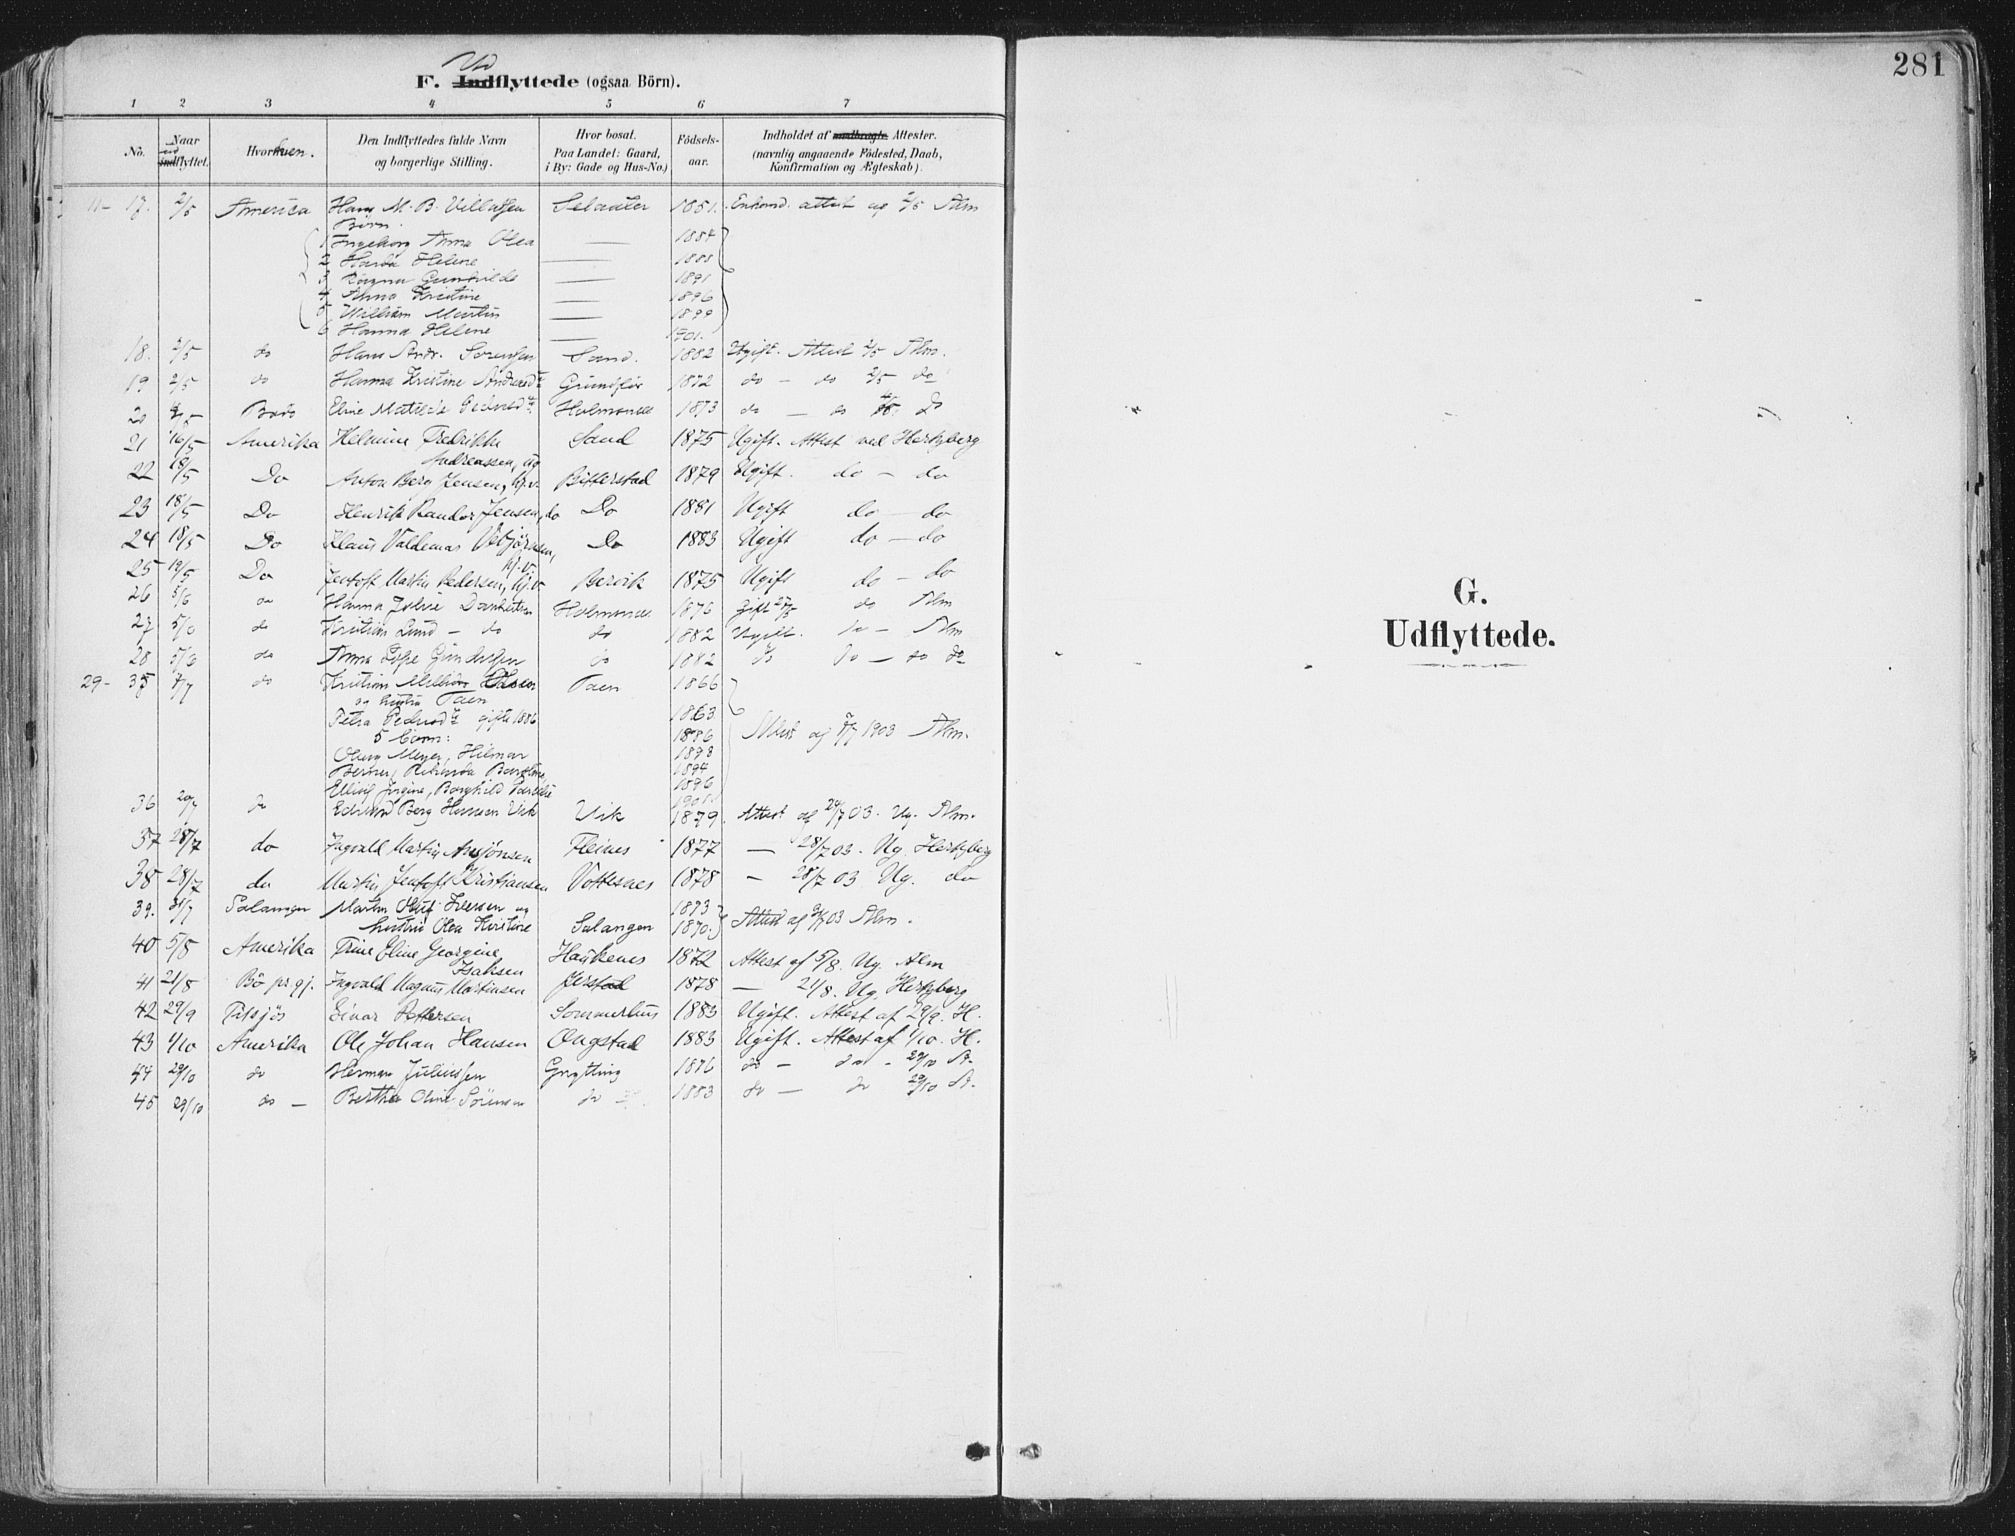 281
F. Udflyttede (ogsaa Börn).
1 2 3 4 5 6 7
No. Naar udflyttet. Hvorhen. Den Indflyttedes fulde Navn og borgerlige Stilling. Hvor bosat. Paa Landet: Gaard, i By: Gade og Hus-No.) Födsels-aar. Indholdet af Attester. (navnlig angaaende Födested, Daab, Konfirmation og Ægteskab).
11-17. 2/5 America Hans M. B. Villassen Selanter 1851. attest ag 2/5 Alm
Börn.
1 Ingeborg Anna Olea — 1884
2 Helene — 1888
3 Ragna Gunhilda — 1891
4 Anna Kristine — 1896
5 William Martin — 1899
6 Hanna Helene — 1901.
18. 2/5 do Hans Andr. Sorensen Sand. 1882 Ugift. Attest 2/5 Alm.
19 2/5 do Hanna Kristine Andreasdtr Grundfør 1872 do — do 2/5 do
20 Bodö Eline Matilde Pedersdtr Holmsnes 1873 do — do do
21 16/5 Amerika Helmine Fredrikke Sand 1875 Ugift. Attest ved Hertzberg
Andreassen, ug
22 18/5 Do Anton Berg Jensen, hj.v. Bitterstad 1879 Ugift. do — do
23 18/5 Do Henrik Randor Jensen, do Do 1881 Ugift do — do
24 18/5 Do Klaus Valdemar Vebjörnsen, Do 1883 Ugift do — do
hj.v.
25 19/5 Do Jentoft Martin Pedersen, hj.v. Bervik 1875 Ugift do — do
26 5/6 do Hanna Holmsnes 1876 gift do Alm
27 5/6 do Kristian Lund — do do 1882 Ugift. do — Alm
28 5/6 do Anna Gundersen do 1882 do do — do do
29-35 7/7 do Kristian Olsen Taen 1866
og hustru Taen
Petra Pedersdtr gifte 1886 1863
5 börn: 1886
Meyer, Hilmar 1893
Berner, 1894
Jörgine, Borghild 1896
1901.
Attest ag 7/7 1903 Alm.
36 20/7 do Edvard Berg Hansen Vik Vik 1879. Attest af 20/7 03. Ug. Alm.
37 28/7 do Ingvald Martin Arnjönsen Fleines 1877 — 28/7 03. Ug. Hertzberg
38 28/7 do Martin Jentoft Kristiansen Vottesnes 1878 — 28/7 03 Ug. do
39. 31/7 Salangen Martin Iversen og 1873
hustru Olea Kristine Salangen 1870. Attest af 31/7 03 Alm.
40 5/8 Amerika Trine Eline Georgine Haukenes 1872 Attest af 5/8. Ug. Alm
Isaksen
41 21/8 Bö pr.gj. Ingvald Magnus Martinsen Jerstad 1878 — 21/8. Ug. Hertzberg
42 29/9 Tilsjös Einar Pettersen Sommerhus 1883 Ugift. Attest af 29/9. H.
43 1/10 Amerika Ole Johan Hansen Ongstad 1883 Ugift. Attest af 1/10. H.
44 29/10 do Herman Juliussen Grytting 1876 do — do - 29/10 A.
45 29/10 do — Berthe Oline Sörensen do 1883 do — do 29/10 A.
G.
Udflyttede.